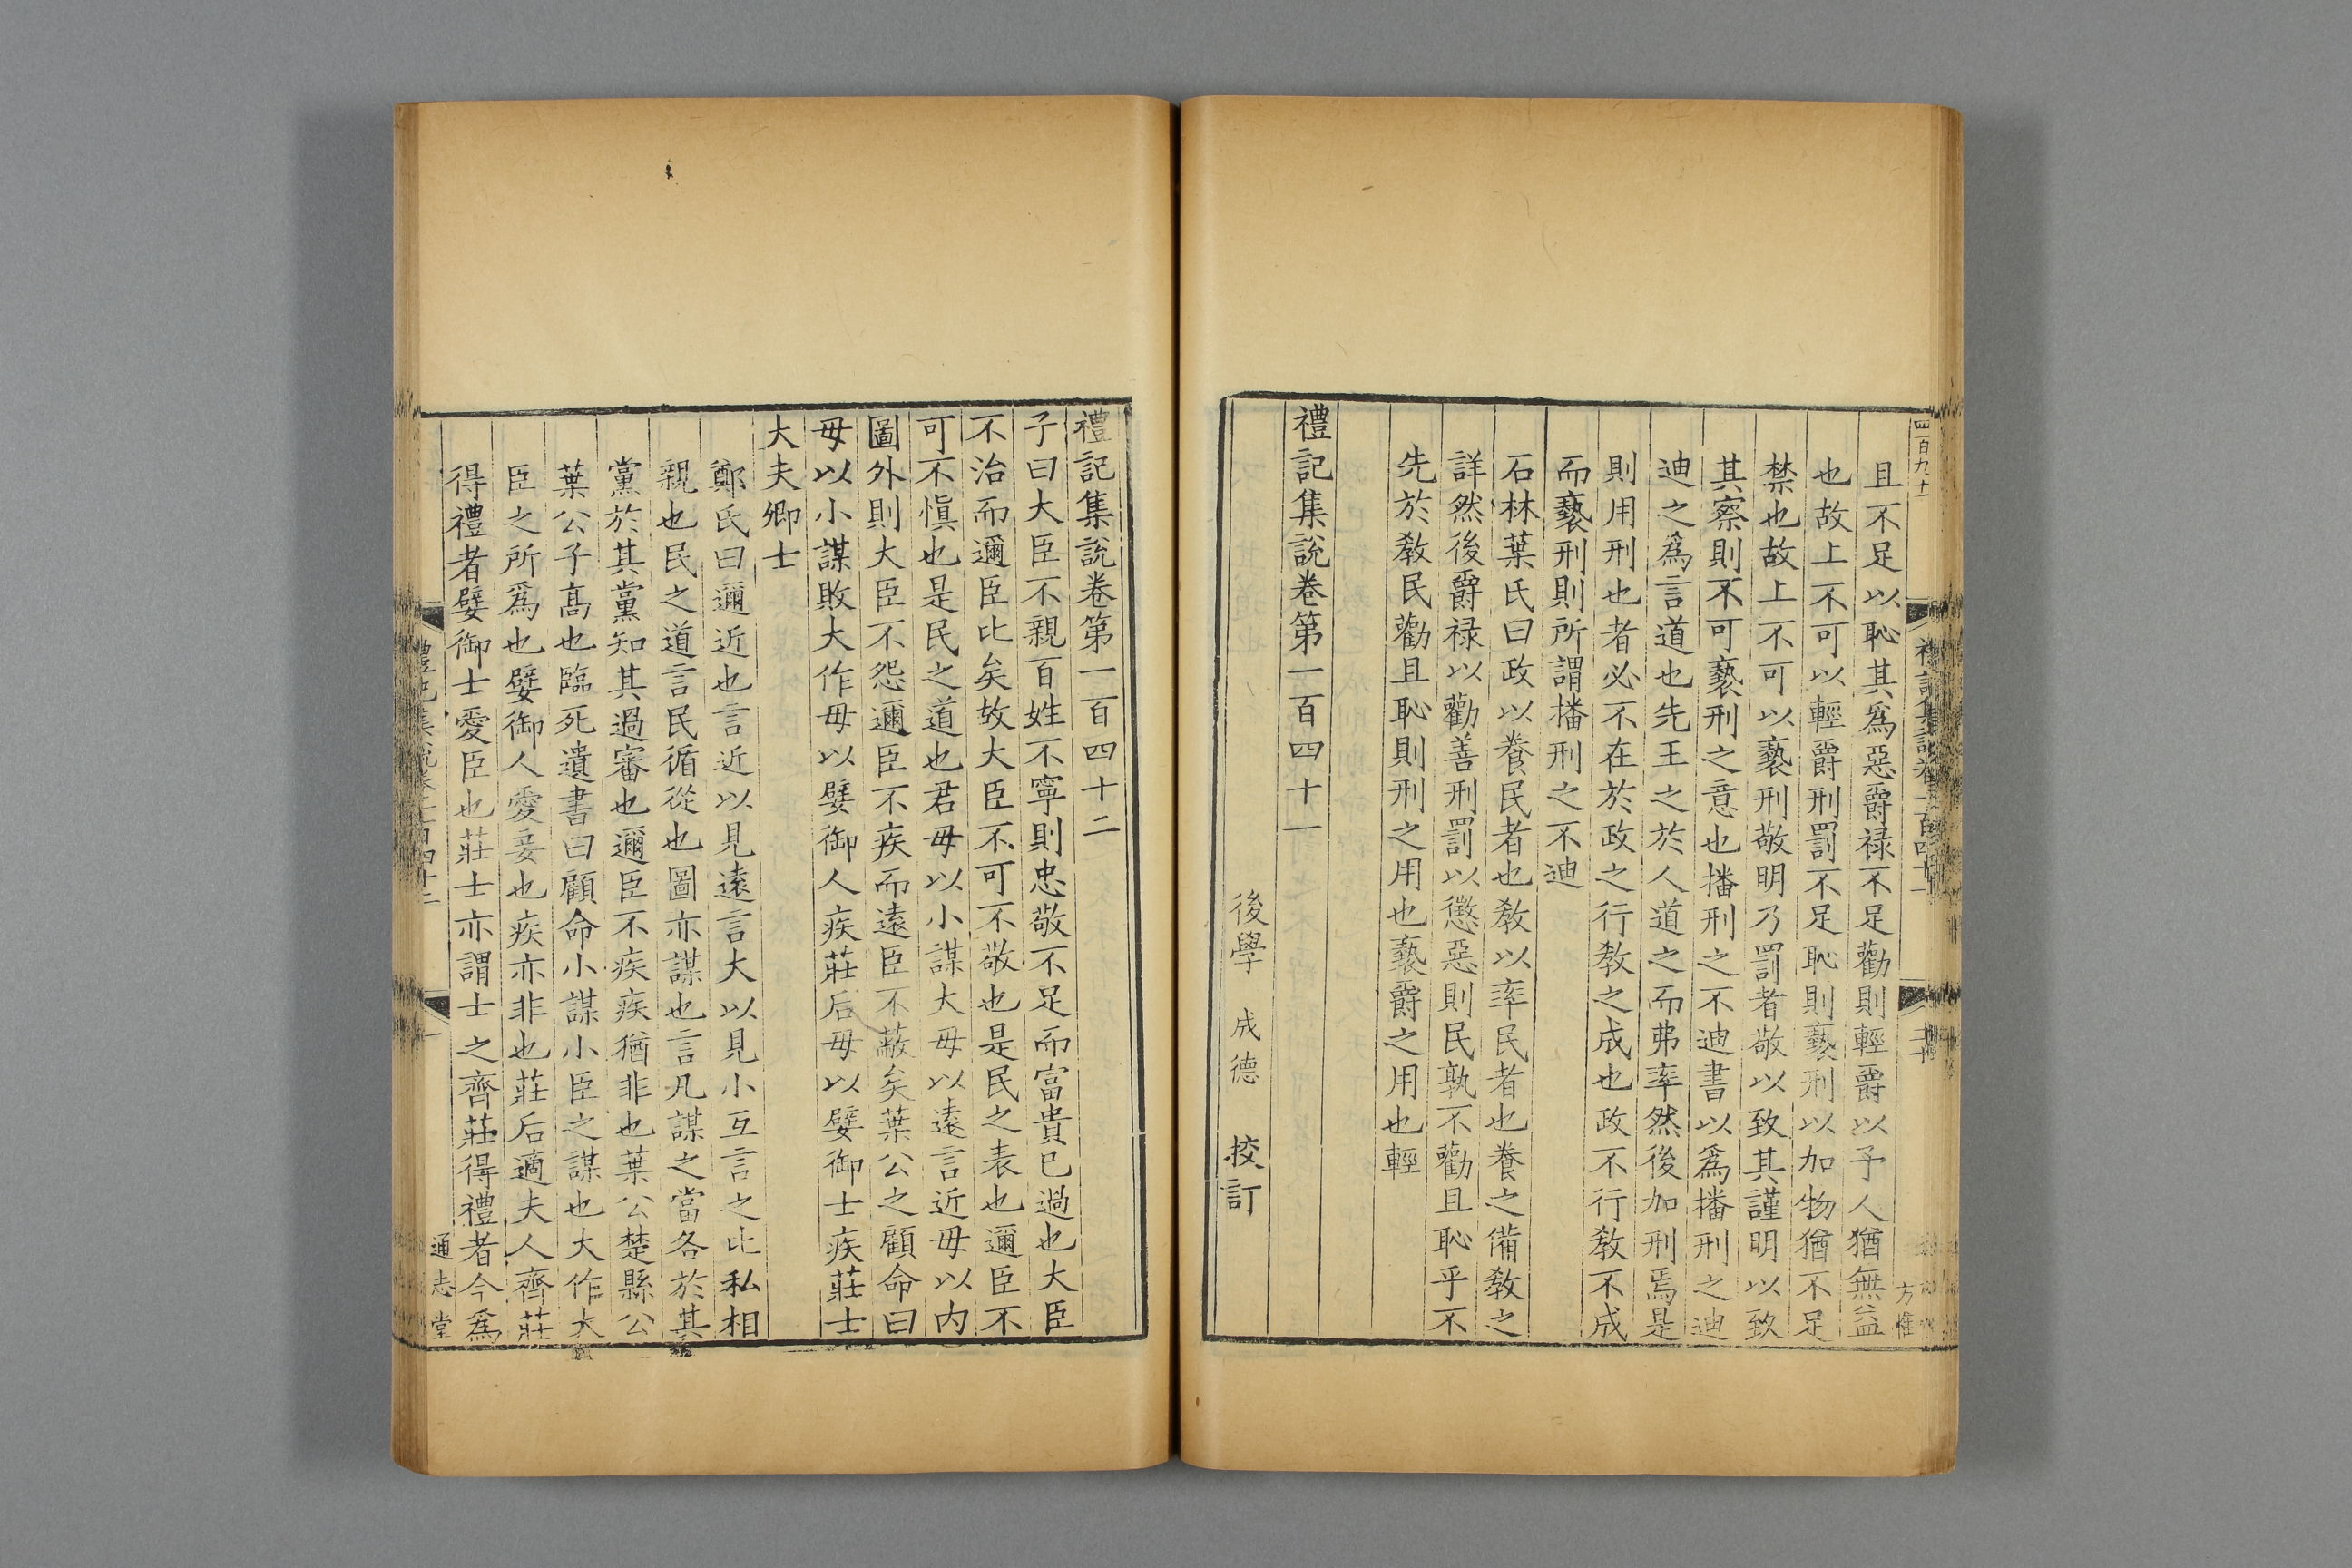 四百九十
且不足以恥其爲惡爵禄不足勸則輕爵以予人猶無益
也故上不可以輕爵刑罰不足恥則褻刑以加物猶不足
禁也故上不可以褻刑敬明乃罰者敬以致其謹明以致
其察則不可褻刑之意也播刑之不迪書以爲播刑之迪
迪之爲言道也先王之於人道之而弗率然後加刑焉是
則用刑也者必不在於政之行敎之成也政不行敎不成
而褻刑則所謂播刑之不迪
石林葉氏曰政以養民者也敎以率民者也養之備敎之
詳然後爵禄以勸善刑罰以懲惡則民孰不勸且恥乎不
先於敎民勸且恥則刑之用也褻爵之用也輕
禮記集說卷第一百四十一
後學 成德 挍訂
禮記集說卷第一百四十二
子曰大臣不親百姓不寧則忠敬不足而富貴已過也大臣
不治而邇臣比矣故大臣不可不敬也是民之表也邇臣不
可不愼也是民之道也君毋以小謀大毋以遠言近毋以内
圖外則大臣不怨邇臣不疾而遠臣不蔽矣葉公之顧命曰
毋以小謀敗大作毋以嬖御人疾莊后毋以嬖御士疾莊士
大夫卿士
鄭氏曰邇近也言近以見遠言大以見小互言之比私相
親也民之道言民循從也圖亦謀也言凡謀之當各於其
黨於其黨知其過審也邇臣不疾疾猶非也葉公楚縣公
葉公子高也臨死遺書曰顧命小謀小臣之謀也大作大
臣之所爲也嬖御人愛妾也疾亦非也莊后適夫人齊莊
得禮者嬖御士愛臣也莊士亦謂士之齊莊得禮者今爲
通志堂